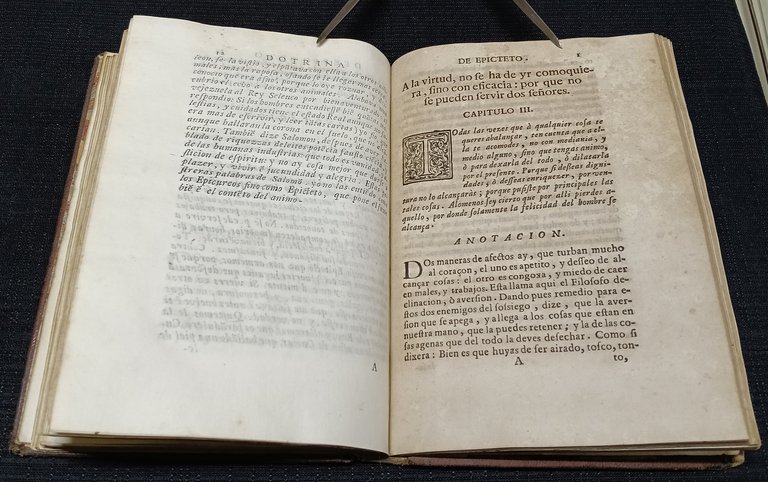 12
DOTRINA
leon, se la vistió, y espantava con ella a los otros ani-
males; mas la raposa, osando se le llegar mas cerca,
conocio que era asno, porque lo oyo roznar, y des-
cubrio el echo a los otros animales.
vejezuela al Rey Seleuco por bienaventurado,
respondio: Si los hombres entendiesse
lestias, y cuidados tiene el estado Real aunque no
era mas de escrivir, y leer
aunque hallaran la corona en el suelo, no la to-
carian. Tambiē dize Salomon, despues de
blado de riquezzas deleites potēcia fausto
de las humanas industrias: que todo es vanidad
sficion de espiritu: y no ay cosa mejor que
plazer, y vivir ē jucundidad y alegria. Estas
streras palabras de Salomō
los Epicureos sino como Epicteto, que pone el
biē ē el contēto del animo.
A
DE EPICTETO.
A la virtud, no se ha de yr comoquie-
ra, sino con eficacia: por que no
se pueden servir dos señores.
CAPITULO III.
Todas las vezes que ò qualquier cosa te
queres abalançar, ten cuenta que a el-
la te acomodes, no con mediania, y
medio alguno, sino que tengas animo,
ò para dexarla del todo, ò dilatarla
por el presente. Porque si desseas digni-
dades y ò desseas enriquezer, por ven-
tura no lo alcançaràs; por que pusiste por principales las
tales cosas. Alomenos sey cierto que por alli pierdes a-
quello, por donde solamente la felicidad del hombre se
alcança.
ANOTACION.
DOs maneras de afectos ay, que turban mucho
al coraçon, el uno es apetito, y desseo de al-
cançar cosas: el otro es congoxa, y miedo de caer
en males, y trabajos. Esta llama aqui el Filosofo de-
clinacion, ò aversion. Dando pues remedio para e-
stos dos enemigos del sossiego, dize, que la aver-
sion que se apega, y allega a los cosas que estan en
nuestra mano, que la puedes retener; y la de las co-
sas agenas que del todo la deves desechar. Como si
dixera: Bien es que huyas de ser airado, tosco, ton-
A
to,